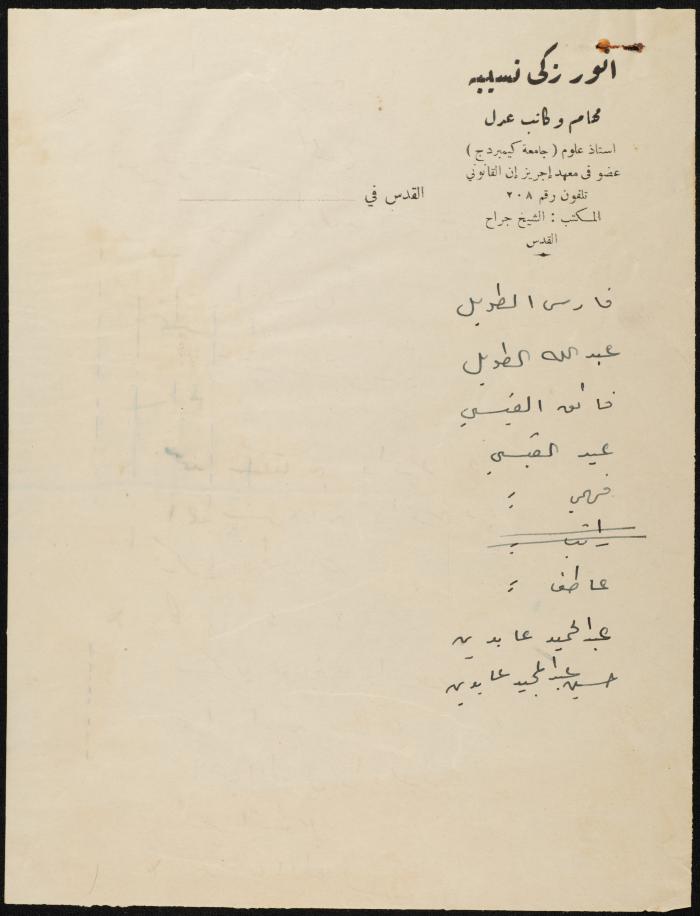 انور زكي نسيبه
محام وكاتب عدل
استاذ علوم ( جامعة كيمبردج )
عضو في معهد إجريز إن القانوني
تلفون رقم ٢٠٨
المكتب : الشيخ جراح
القدس
القدس في
فارس الطويل
عبد الله الطويل
فائق القيسي
عيد القيسي
فهمي 〃
راتب 〃
عاطف 〃
عبد الحميد عابدين
حسين عبد المجيد عابدين